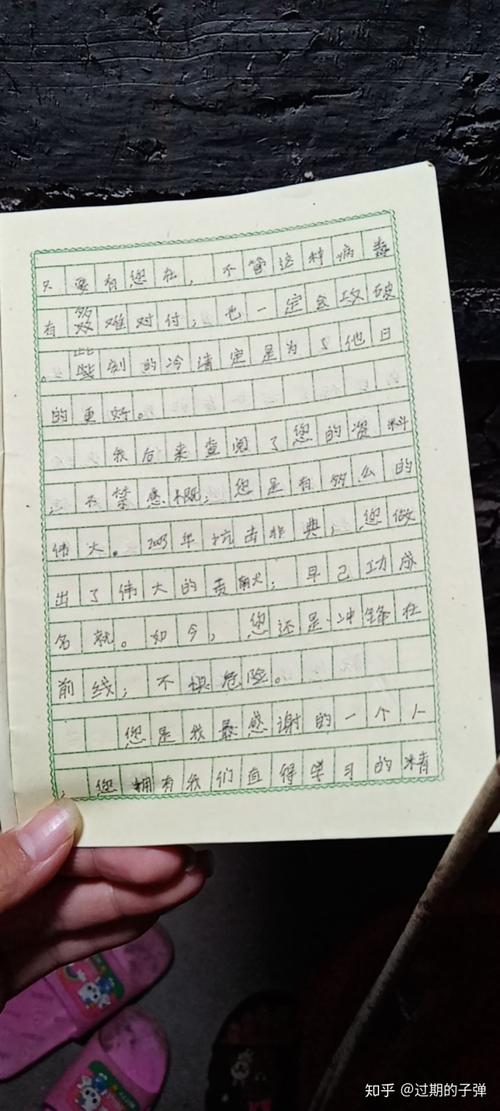 只要有您在，不管这种病毒
有多难对付；也一定会攻破
。此刻的冷清定是为了他日
的更好。
我后来查阅了您的资料
；不禁感慨；您是有多么的
伟大。2003年抗击非典，您做
出了伟大的贡献；早已功成
名就。如今，您还是冲锋在
前线；不惧危险。
您是我最感谢的一个人
；您拥有我们直得学习的精
知乎 @过期的子弹